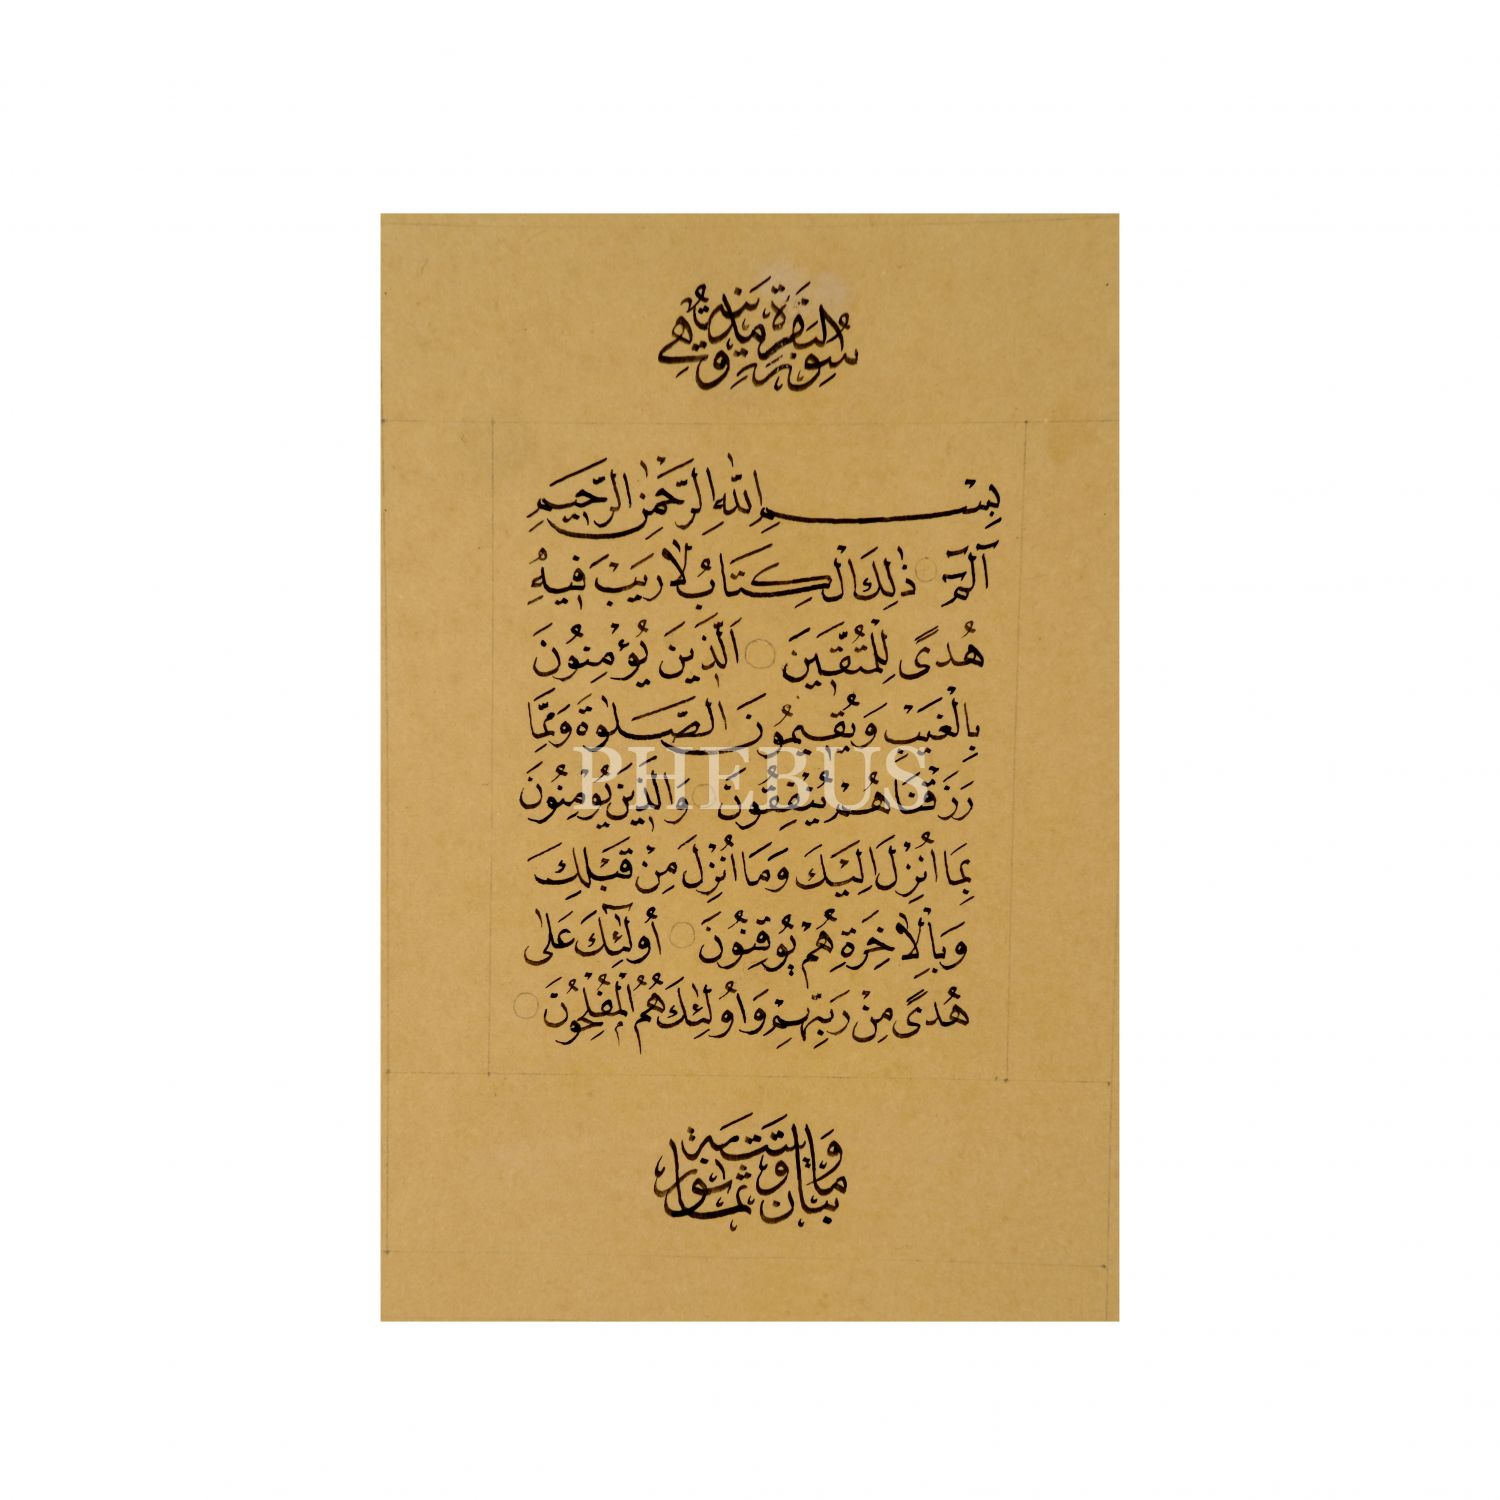 سُورَةُ الْبَقَرَةِ مَدَنِيَّةٌ وَهِيَ
بِسْمِ اللّٰهِ الرَّحْمٰنِ الرَّحِيمِ
آلٓمٓ ذٰلِكَ الْكِتَابُ لَا رَيْبَ فِيهِ
هُدًى لِلْمُتَّقِينَ اَلَّذِينَ يُؤْمِنُونَ
بِالْغَيْبِ وَيُقِيمُونَ الصَّلٰوةَ وَمِمَّا
رَزَقْنَاهُمْ يُنْفِقُونَ وَالَّذِينَ يُؤْمِنُونَ
بِمَا اُنْزِلَ اِلَيْكَ وَمَا اُنْزِلَ مِنْ قَبْلِكَ
وَبِالْاٰخِرَةِ هُمْ يُوقِنُونَ أُولٰٓئِكَ عَلٰى
هُدًى مِنْ رَبِّهِمْ وَاُولٰٓئِكَ هُمُ الْمُفْلِحُونَ
مائتان وست وثمانون آية
PHEBUS